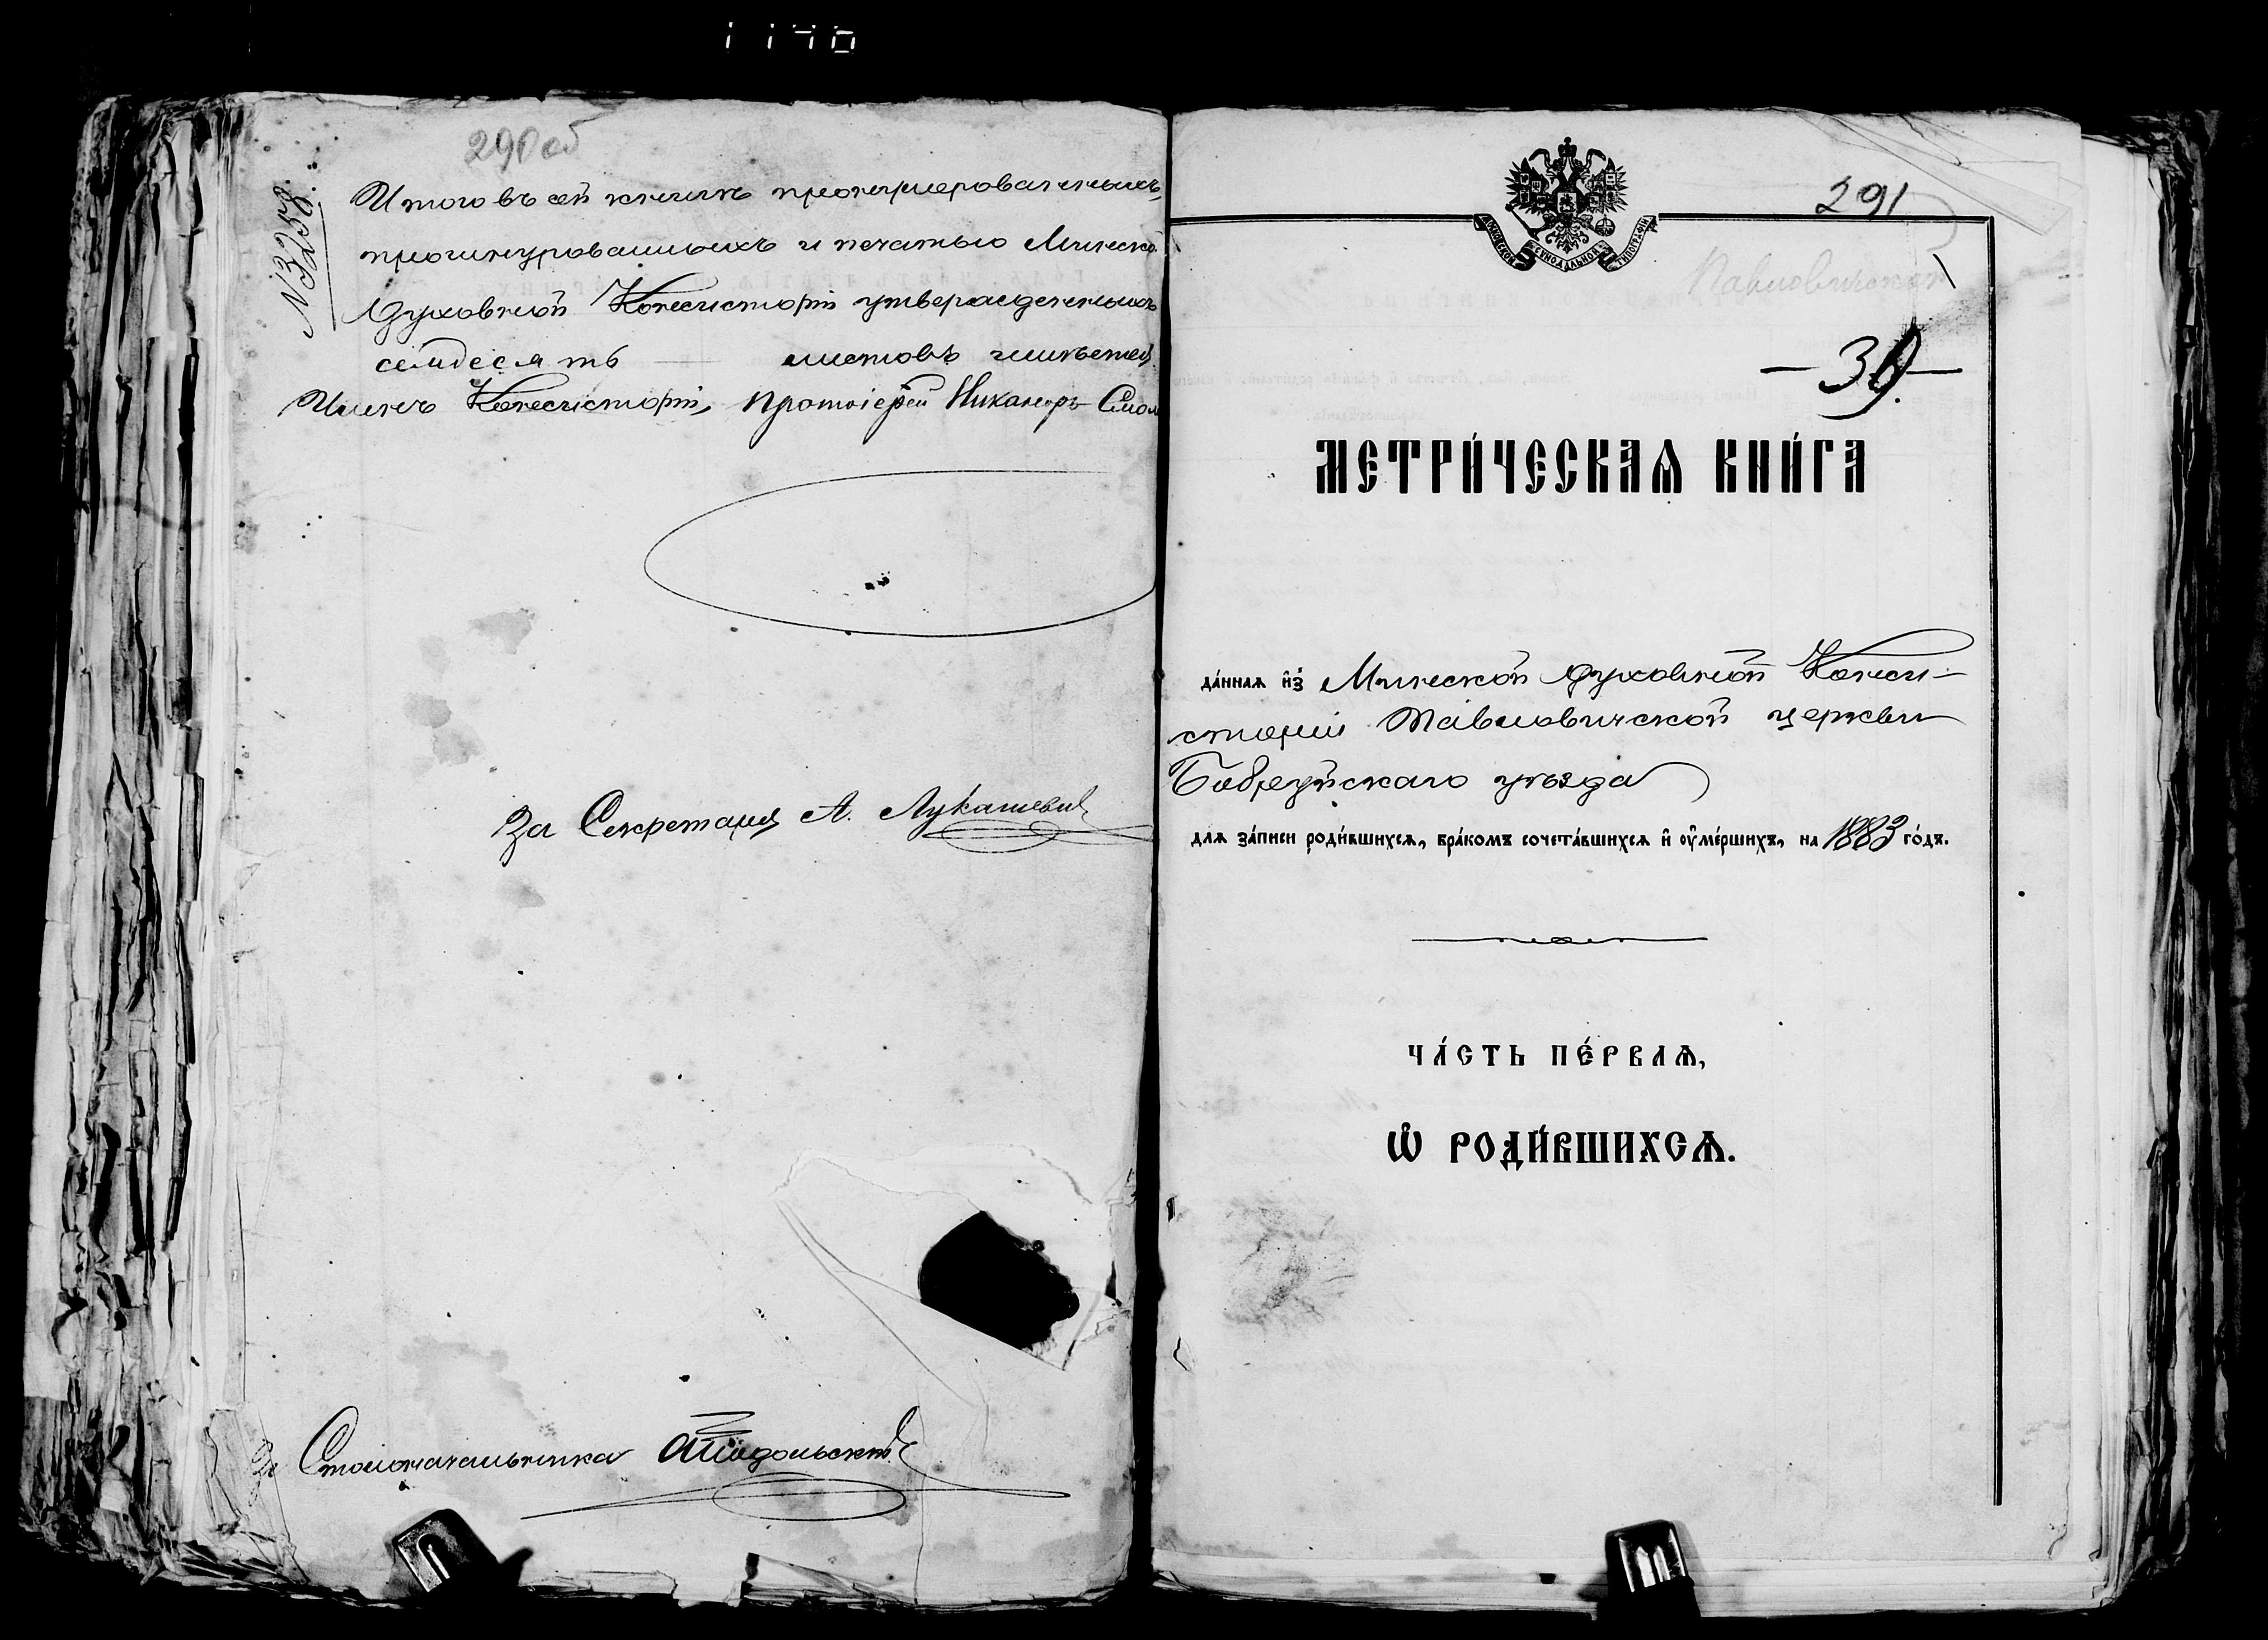 1140
290 об
№ 3258.
Итого въ сей книгѣ пронумерованныхъ,
прошнурованныхъ и печатью Минской
Духовной Консисторіи утвержденныхъ
семдесятъ листовъ
Членъ Консисторіи, Протоіерей Никаноръ Смол
За Секретаря А. Лукашевичъ
За Столоначальника
291
МОСКОВСКОЙ СѴНОДАЛЬНОЙ ТИПОГРАФІИ
Павловичская
МЕТРИ́ЧЕСКАѦ КНИ́ГА
да́ннаѧ и҆з̾ Минской Духовной Конси-
сторіи Павловичской церкви
Бобруйскаго уѣзда
длѧ за́писи роди́вшихсѧ, бра́комъ сочета́вшихсѧ и҆ ᲂу҆ме́ршихъ, на 1883 го́дъ.
ЧА́СТЬ ПЕ́РВАѦ,
Ѽ РОДИ́ВШИХСѦ.